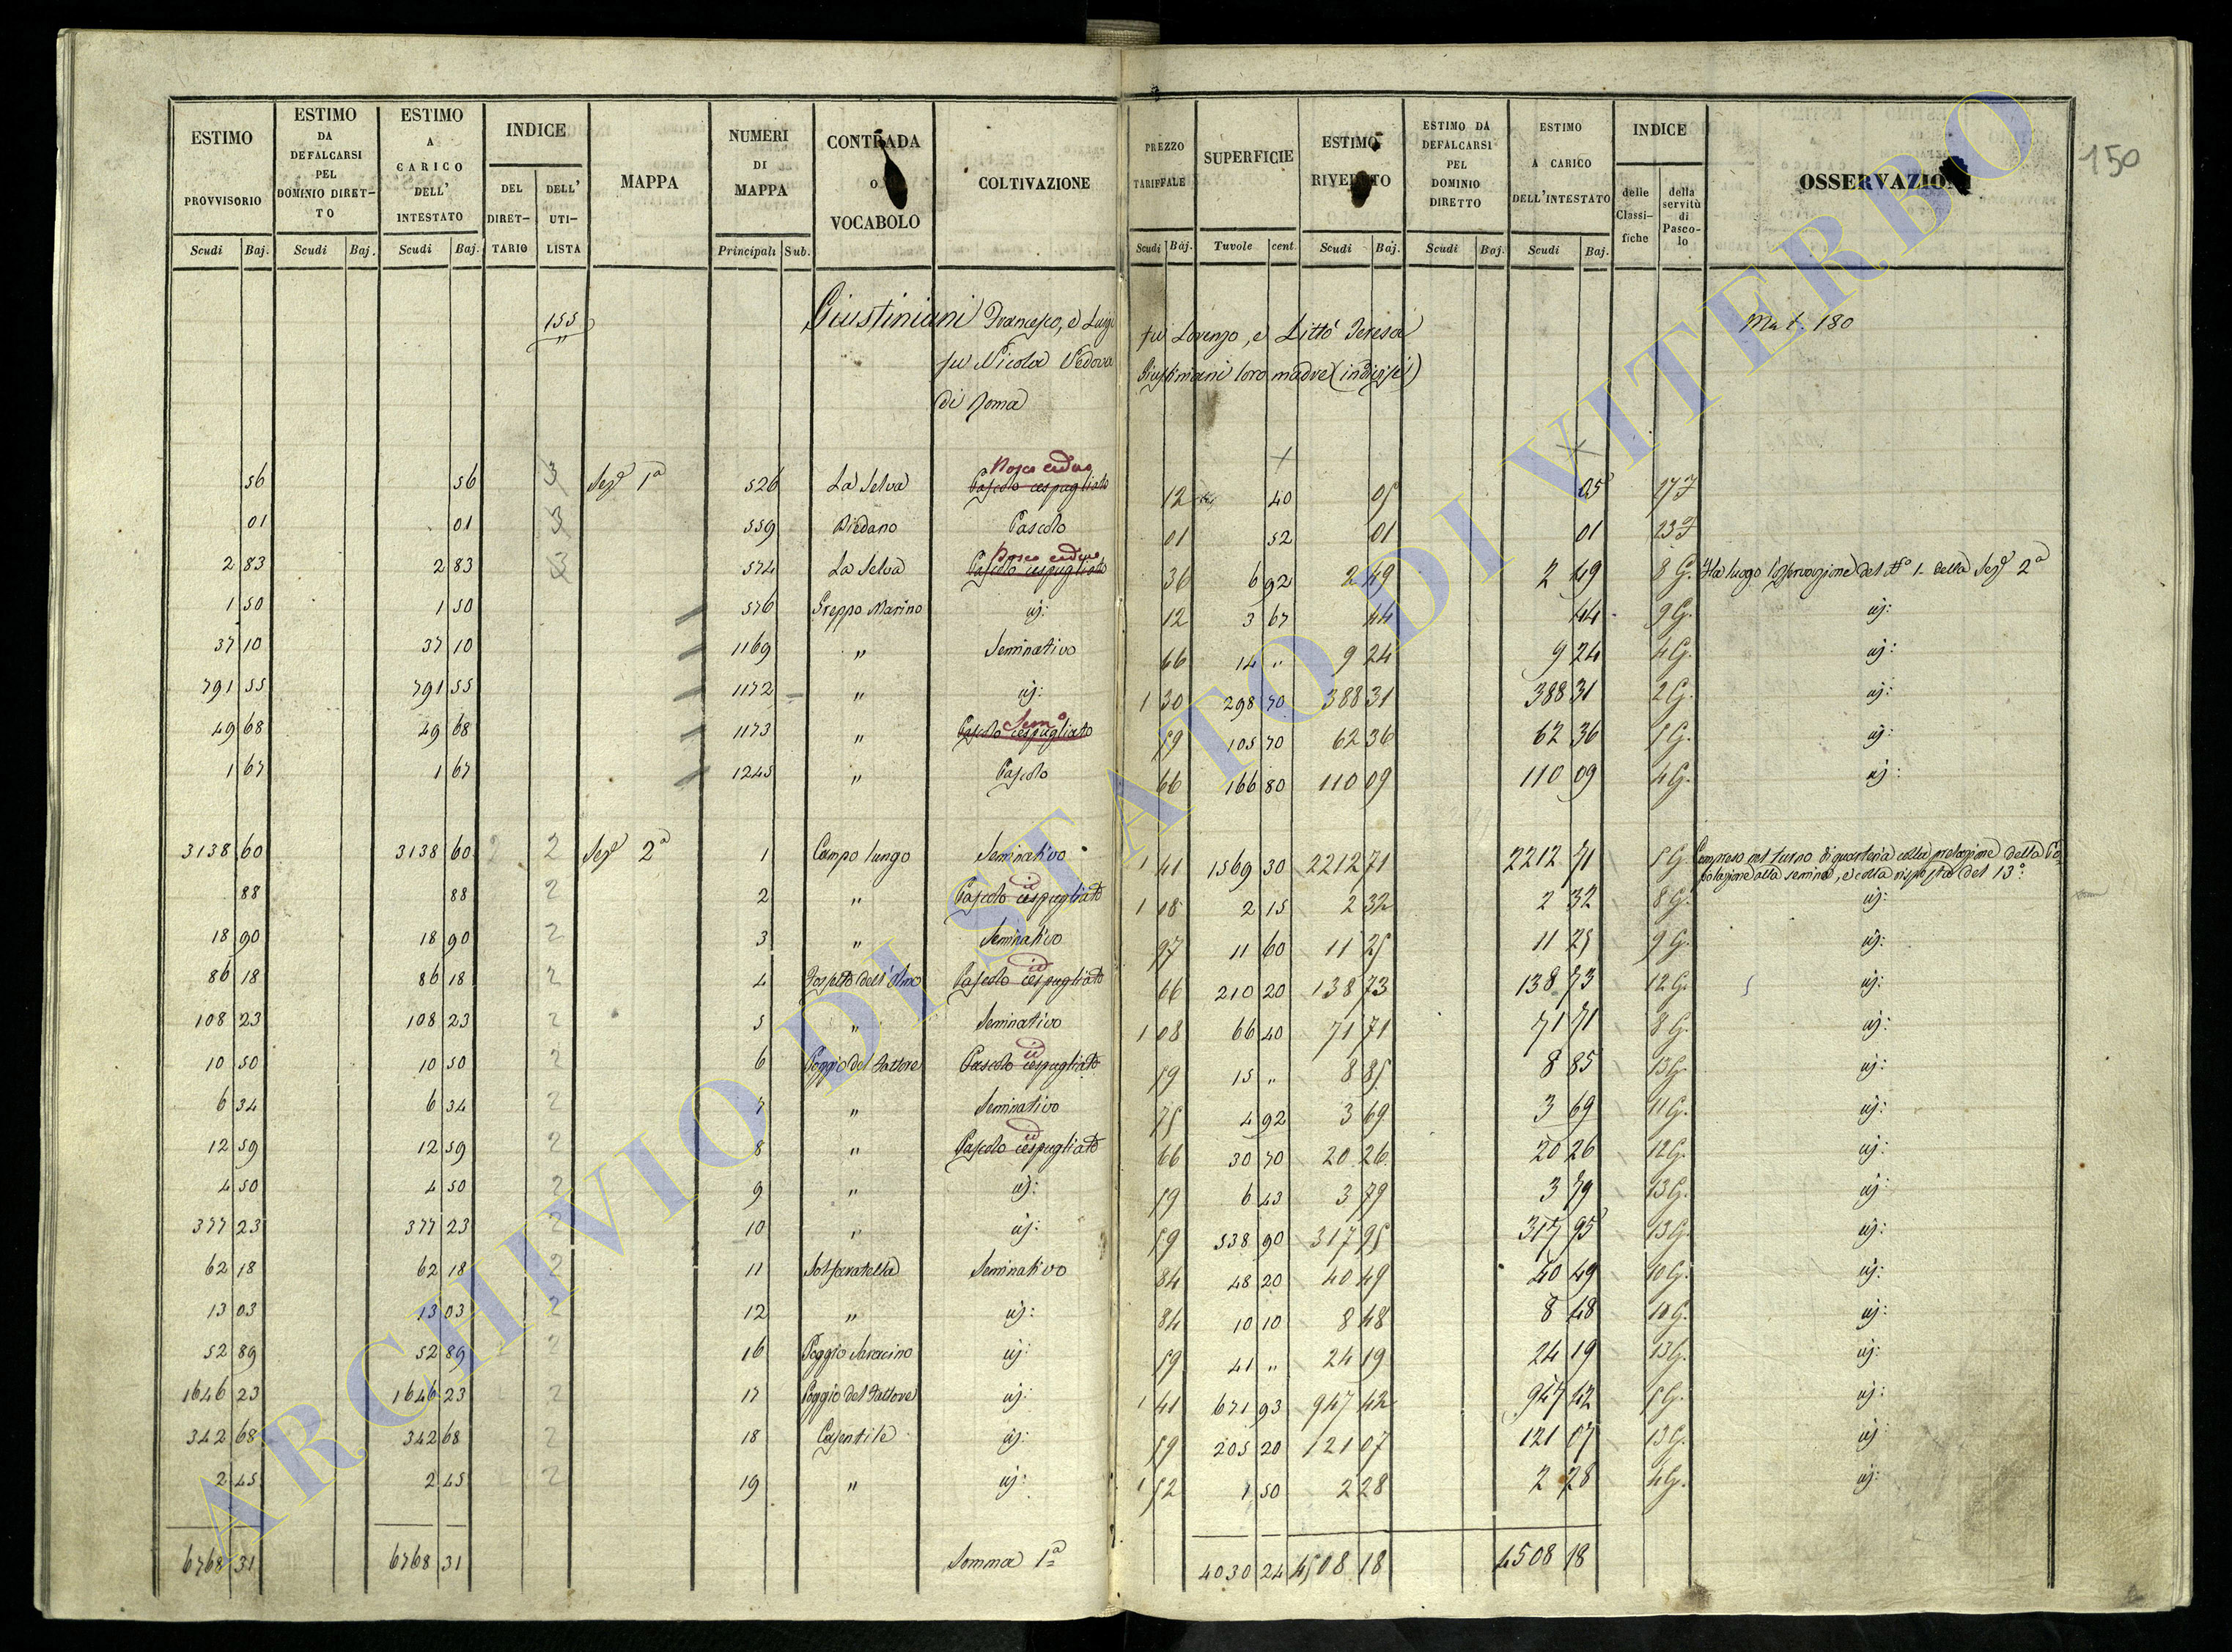 150
ESTIMO PROVVISORIO Scudi Baj.
ESTIMO DA DEFALCARSI PEL DOMINIO DIRET-TO Scudi Baj.
ESTIMO A CARICO DELL' INTESTATO Scudi Baj.
INDICE DEL DIRET-TARIO DELL' UTI-LISTA
MAPPA
NUMERI DI MAPPA Principali Sub.
CONTRADA O VOCABOLO
COLTIVAZIONE
PREZZO TARIFFALE Scudi Baj.
SUPERFICIE Tavole cent.
ESTIMO Scudi Baj.
ESTIMO DA DEFALCARSI PEL DOMINIO DIRETTO Scudi Baj.
ESTIMO A CARICO DELL'INTESTATO Scudi Baj.
INDICE delle Classi-fiche della servitù di Pasco-lo
155 Giustiniani Francesco, e Luigi fu Lorenzo, e Littò Teresa Mat. 180
fu Nicola Vedova Giustiniani loro madre (indivisi)
di Roma
56 56 3 Sez.e 1a 526 La Selva Bosco ceduo Pascolo cespugliato 12 40 05 05 17
01 01 3 559 Biedano Pascolo 01 52 01 01 23
2 83 2 83 3 574 La Selva Bosco ceduo Pascolo cespugliato 36 6 92 2 49 2 49 8 G. Ha luogo l'osservazione del N° 1 della Sez.e 2a
1 50 1 50 576 Greppo Marino id: 12 3 67 44 44 9 G. id:
37 10 37 10 1169 " Seminativo 66 14 " 9 24 9 24 4 G. id:
791 55 791 55 1172 " id: 1 30 298 70 388 31 388 31 2 G. id:
49 68 49 68 1173 " Sem.o Pascolo cespugliato 59 105 70 62 36 62 36 5 G. id:
1 67 1 67 1245 " Pascolo 66 166 80 110 09 110 09 4 G. id:
3138 60 3138 60 2 2 Sez.e 2a 1 Campo lungo Seminativo 1 41 1569 30 2212 71 2212 71 5 G Compreso nel turno di quarteria colla prelazione della Po
polazione alla semina, e colla risposta del 13°
88 88 2 2 " id Pascolo cespugliato 1 08 2 15 2 32 2 32 8 G. id:
18 90 18 90 2 3 " Seminativo 97 11 60 11 25 11 25 9 G. id:
86 18 86 18 2 4 Fossetto dell'Olmo id Pascolo cespugliato 66 210 20 138 73 138 73 12 G. id:
108 23 108 23 2 5 " Seminativo 1 08 66 40 71 71 71 71 8 G. id:
10 50 10 50 2 6 Poggio del Fattore id Pascolo cespugliato 59 15 " 8 85 8 85 13 G. id:
6 34 6 34 2 7 " Seminativo 75 4 92 3 69 3 69 11 G. id:
12 59 12 59 2 8 " id Pascolo cespugliato 66 30 70 20 26 20 26 12 G. id:
4 50 4 50 2 9 " id: 59 6 43 3 79 3 79 13 G. id:
377 23 377 23 2 10 " id: 59 538 90 317 95 317 95 13 G. id:
62 18 62 18 2 11 Solfaratella Seminativo 84 48 20 40 49 40 49 10 G. id:
13 03 13 03 2 12 " id: 84 10 10 8 48 8 48 10 G. id:
52 89 52 89 2 16 Poggio Saracino id: 59 41 " 24 19 24 19 13 G. id:
1646 23 1646 23 2 17 Poggio del Fattore id: 1 41 671 93 947 42 947 42 5 G. id:
342 68 342 68 2 18 Casentile id: 59 205 20 121 07 121 07 13 G. id:
2 45 2 45 2 19 " id: 1 52 1 50 2 28 2 28 4 G. id:
6768 31 6768 31 Somma 1a 4030 24 4508 18 4508 18
ARCHIVIO DI STATO DI VITERBO